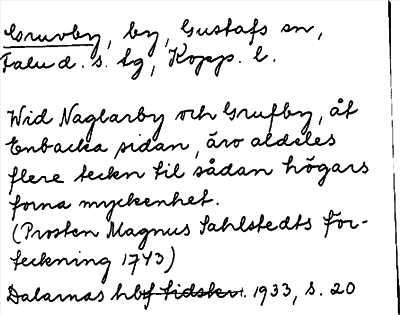 Gruvby, by, Gustafs sn,
Falu d. s. tg, Kopp. l.
Wid Naglarby och Grufby, åt
Enbacka sidan, äro aldeles
flere tecken til sådan högars
forna myckenhet.
(Prosten Magnus Sahlstedts för-
teckning 1743)
Dalarnas hbf tidskr. 1933, s. 20